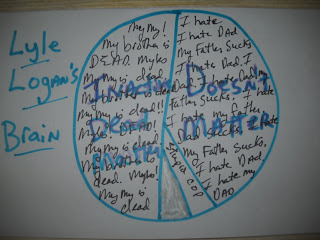 Lyle
Logan's
Brain
My My!
My brother is
DEAD. Myles
My My is dead.
My brother is dead
My my is dead!!
DEAD!
My my is dead
My brother is
dead. Myles!
My my is
dead
Dead
I hate
I hate DAD
My Father Sucks
I hate Dad. I
I hate Dad my
Father sucks. I hate
I hate my father
Dad sucks. I hate
my Father sucks.
I hate DAD.
I hate my
DAD
Doesn't
Matter
Stupid
COP